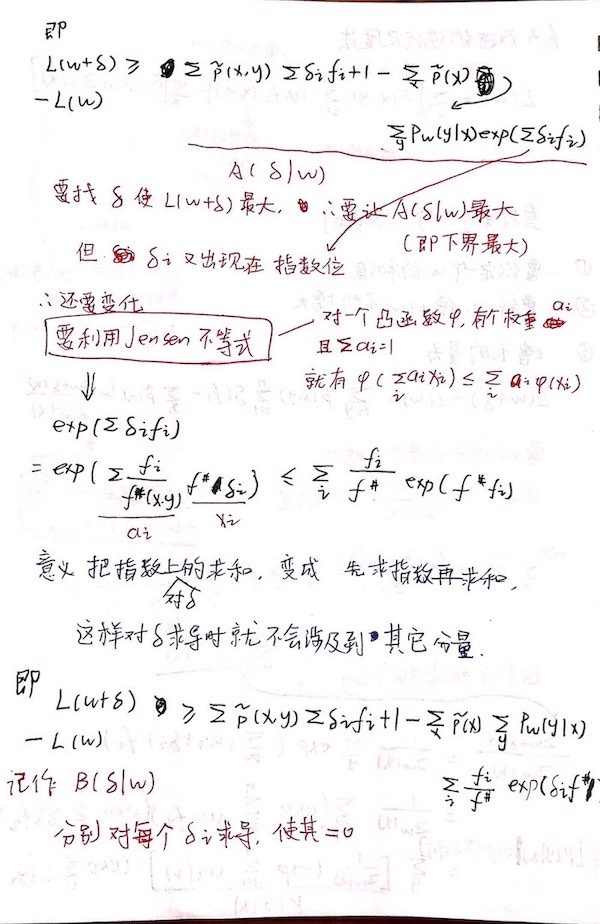 即
L(w+δ) ≥ Σ p̃(x,y) Σ δi fi + 1 - Σx p̃(x)
-L(w)
Σy Pw(y|x) exp(Σ δi fi)
A(δ|w)
要找 δ 使 L(w+δ) 最大, ∴要让 A(δ|w) 最大
(即下界最大)
但 δi 又出现在 指数位
∴还要变化
要利用 Jensen 不等式
对一个凸函数φ, 有个权重 ai
且 Σai=1
就有 φ(Σi ai xi) ≤ Σi ai φ(xi)
⇓
exp(Σ δi fi)
= exp(Σ fi/f#(x,y) f# δi) ≤ Σi fi/f# exp(f# fi)
ai xi
意义 把指数上的求和, 变成 先求指数再求和,
对δ
这样对δ求导时就不会涉及到 其它分量.
即
L(w+δ) ≥ Σ p̃(x,y) Σ δi fi + 1 - Σx p̃(x) Σy Pw(y|x)
-L(w)
Σi fi/f# exp(δi f#)
记作 B(δ|w)
分别对每个 δi 求导, 使其=0